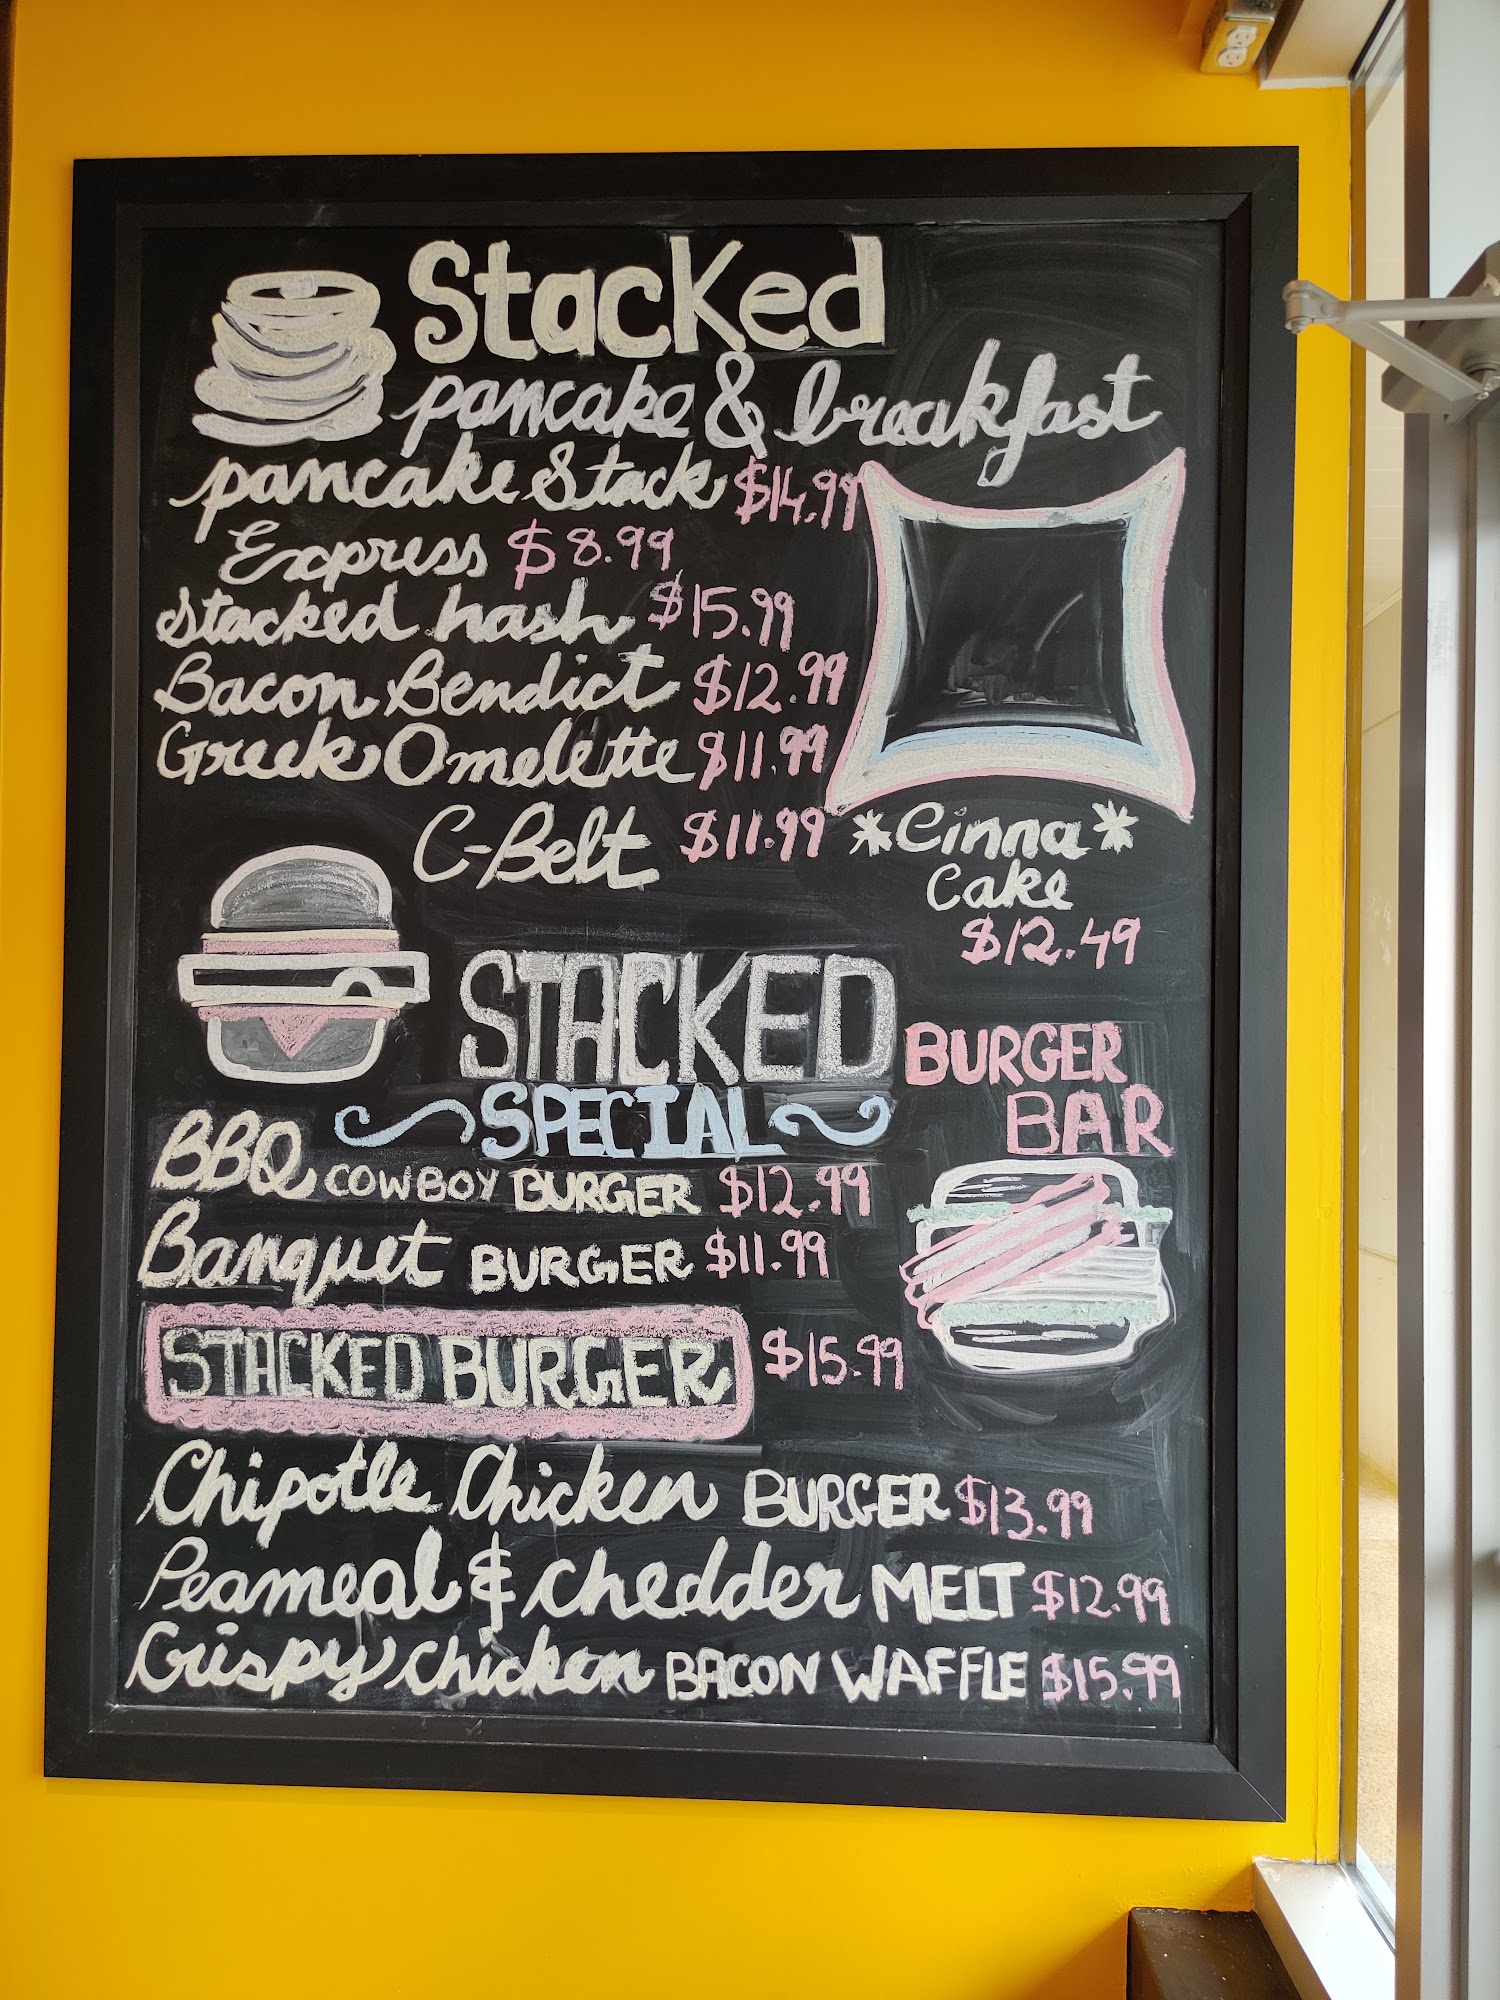 Stacked
pancake & breakfast
pancake Stack $14.99
Express $8.99
Stacked hash $15.99
Bacon Bendict $12.99
Greek Omelette $11.99
C-Belt $11.99
*Cinna*
Cake
$12.49
STACKED
BURGER
BAR
SPECIAL
BBQ COWBOY BURGER $12.99
Banquet BURGER $11.99
STACKED BURGER $15.99
Chipotle Chicken BURGER $13.99
Peameal & chedder MELT $12.99
Crispy chicken BACON WAFFLE $15.99